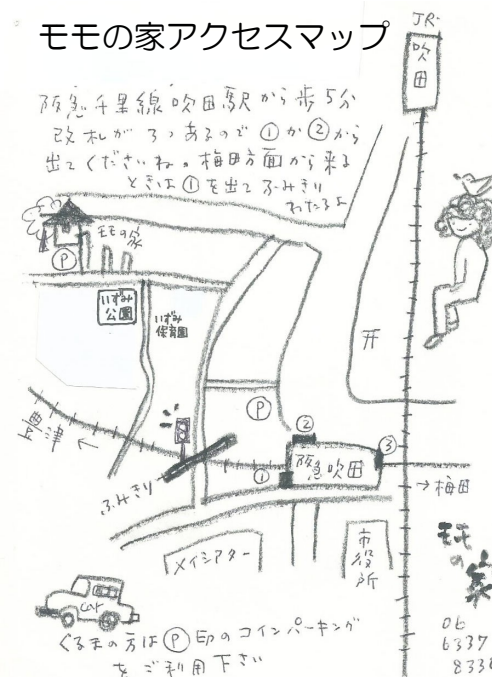 モモの家アクセスマップ
JR
吹田
阪急千里線吹田駅から歩5分
改札が3つあるので①か②から
出てくださいね。梅田方面から来る
ときは①を出てふみきり
わたるよ
モモの家
P
いずみ
公園
いずみ
保育園
P
②
③
①
阪急吹田
豊津
←
→梅田
ふみきり
メイシアター
市役所
モモの家
06
6337
8338
car
くるまの方はⓅ印のコインパーキング
をご利用下さい